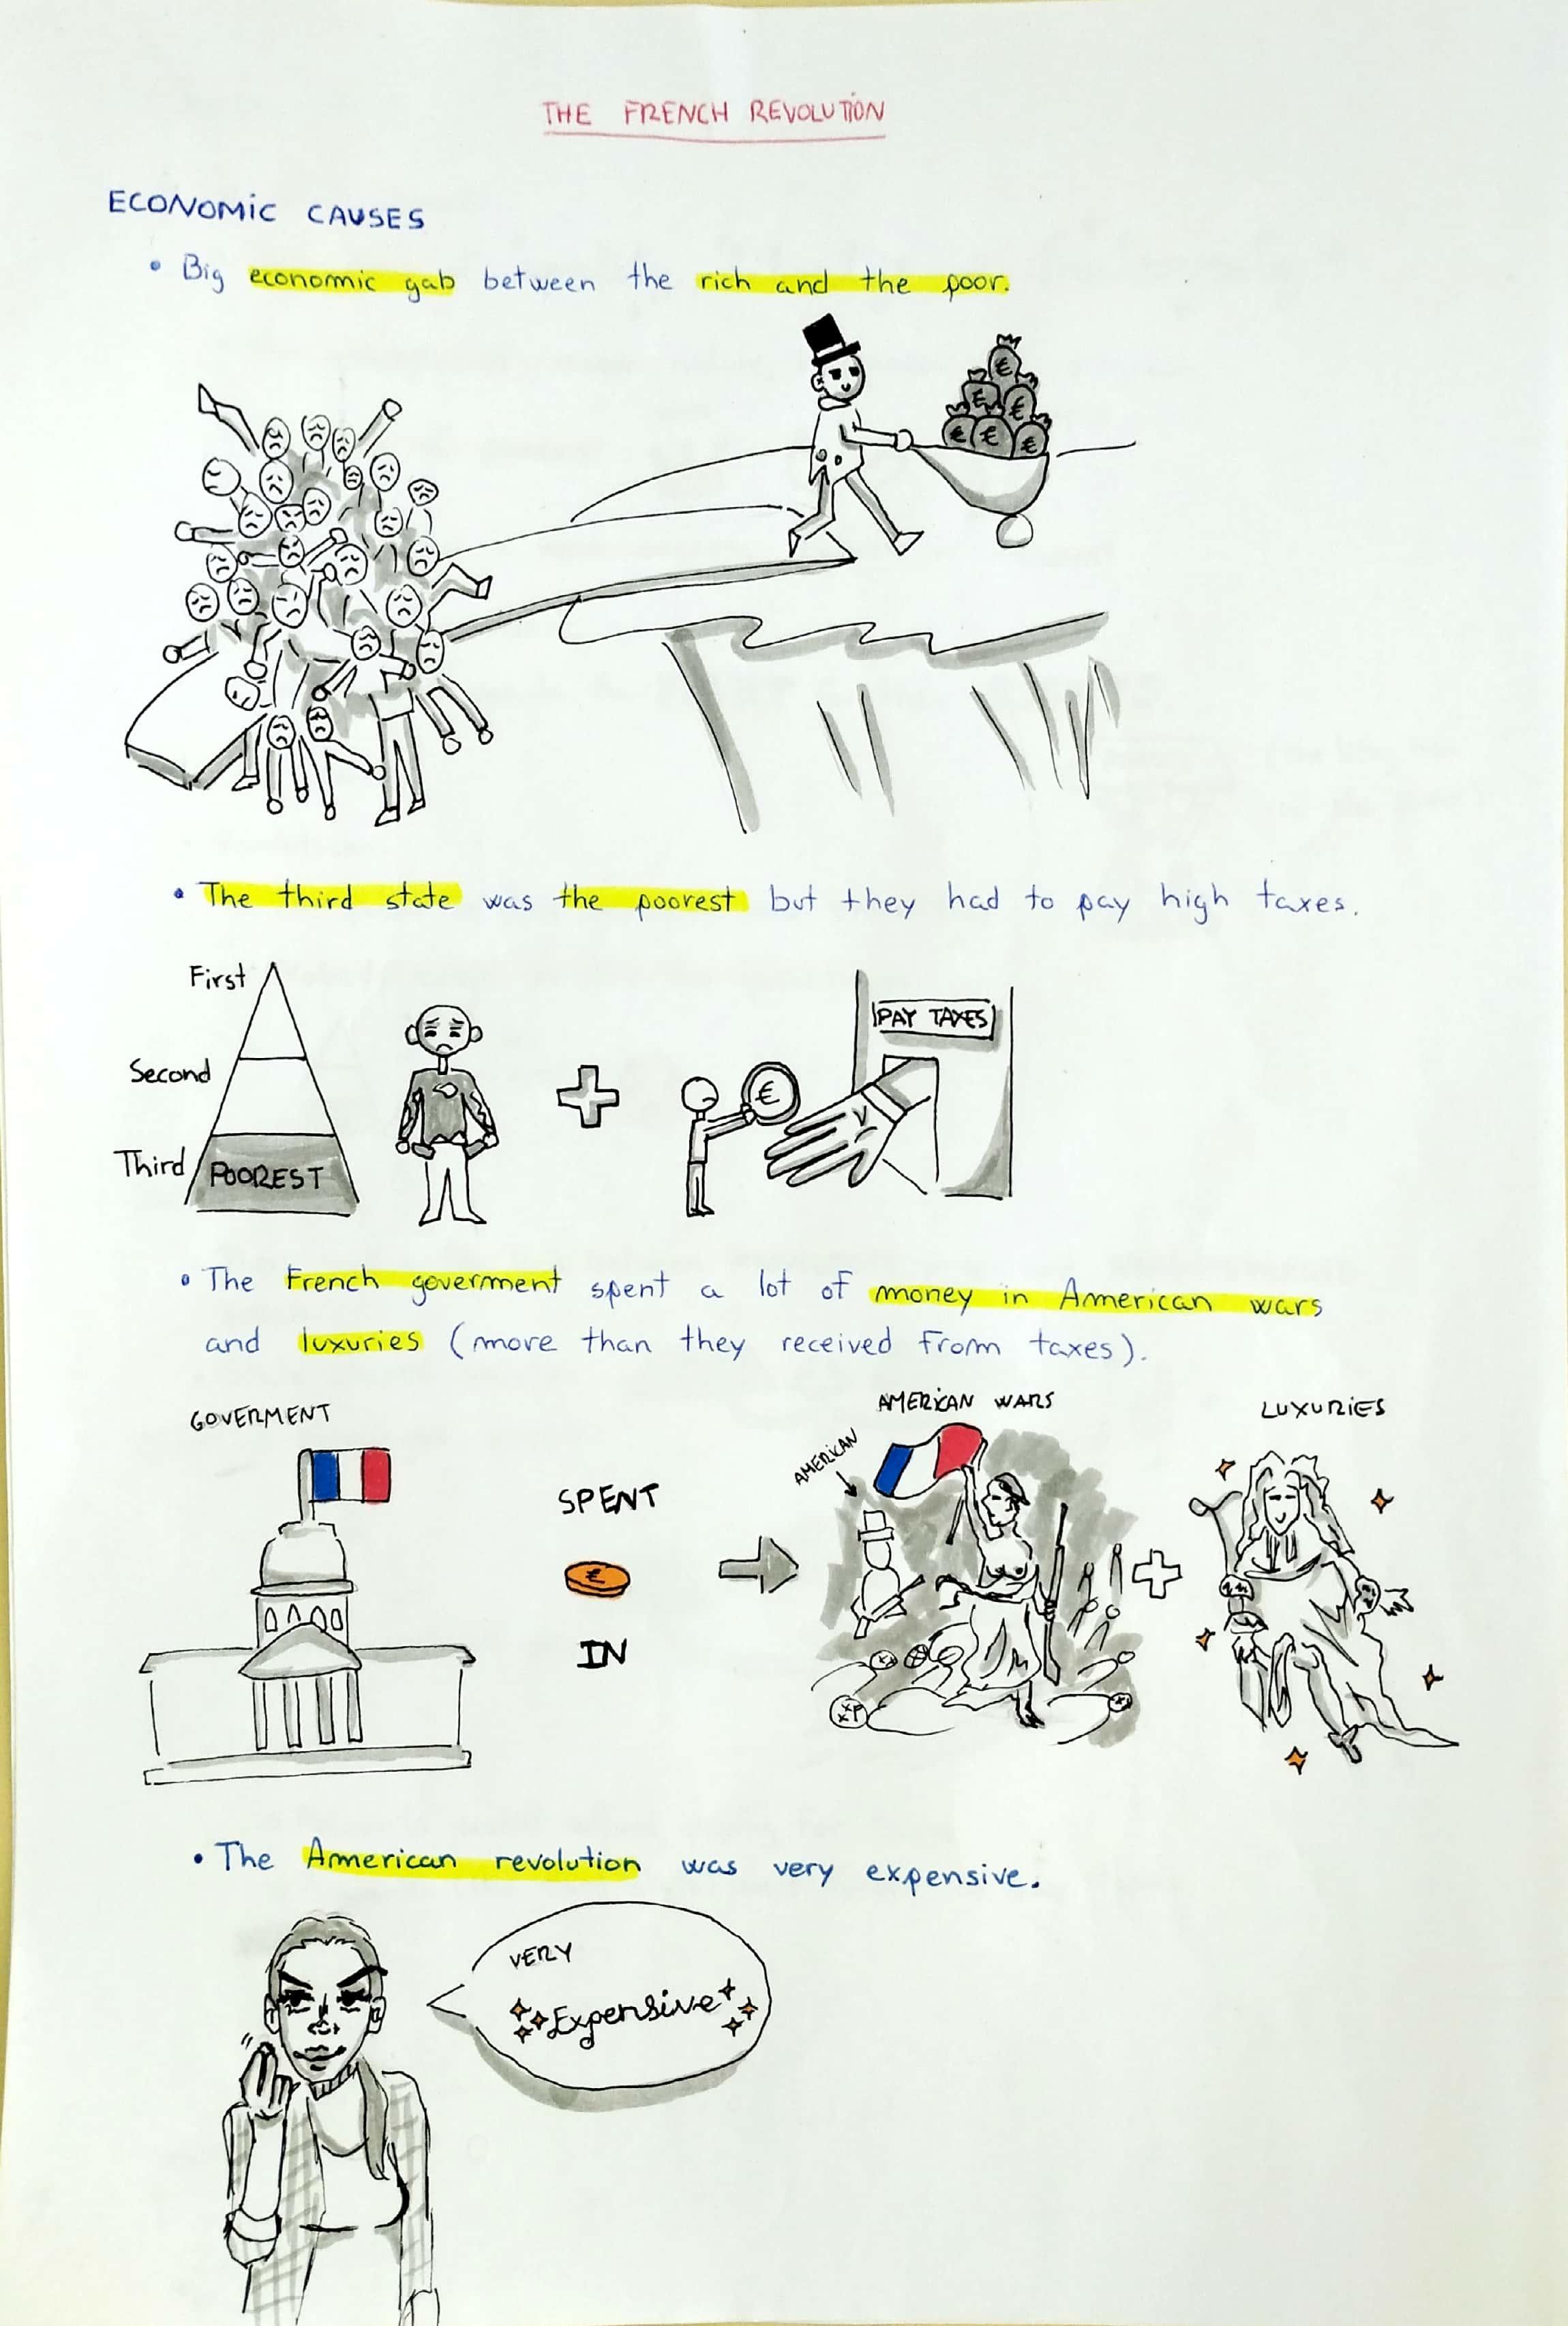 THE FRENCH REVOLUTION
ECONOMIC CAUSES
• Big economic gab between the rich and the poor.
€
€ €
€ € €
• The third state was the poorest but they had to pay high taxes.
First
Second
Third POOREST
PAY TAXES
€
• The French goverment spent a lot of money in American wars
and luxuries (more than they received from taxes).
GOVERMENT
SPENT
€
IN
AMERICAN WARS
AMERICAN
LUXURIES
• The American revolution was very expensive.
VERY
Expensive